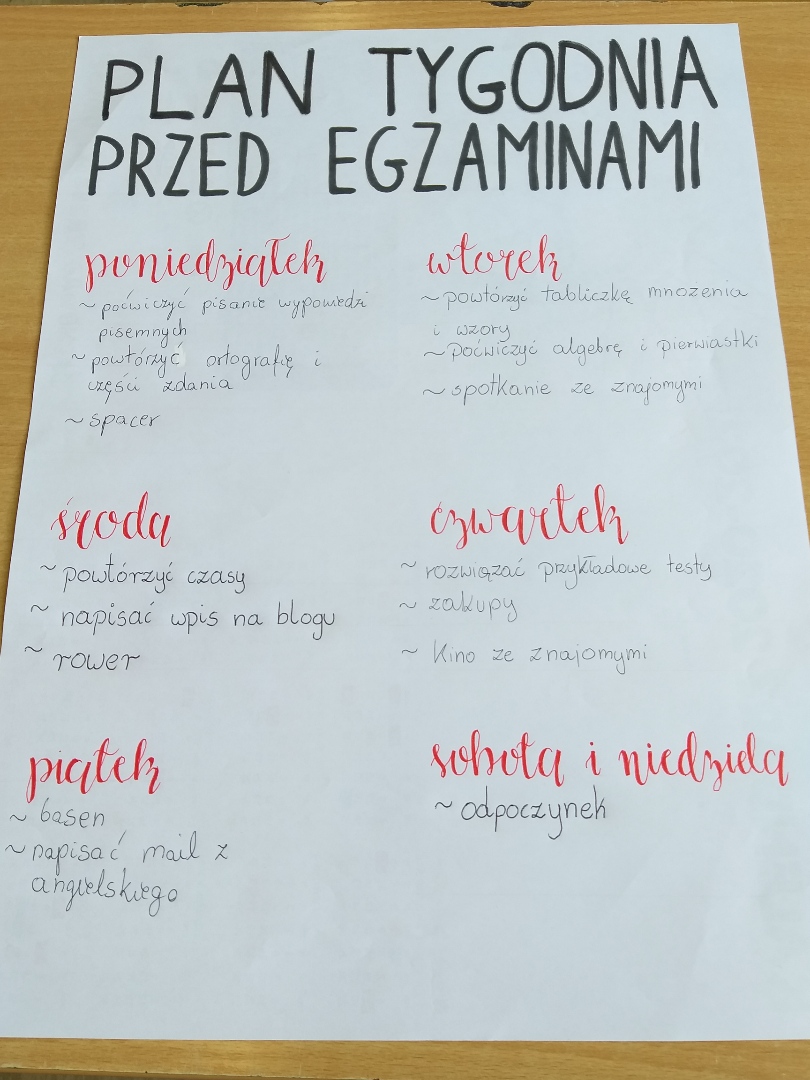 PLAN TYGODNIA
PRZED EGZAMINAMI
poniedziałek
~ poćwiczyć pisanie wypowiedzi
pisemnych
~ powtórzyć ortografię i
części zdania
~ spacer
wtorek
~ powtórzyć tabliczkę mnożenia
i wzory
~ poćwiczyć algebrę i pierwiastki
~ spotkanie ze znajomymi
środa
~ powtórzyć czasy
~ napisać wpis na blogu
~ rower
czwartek
~ rozwiązać przykładowe testy
~ zakupy
~ kino ze znajomymi
piątek
~ basen
~ napisać mail z
angielskiego
sobota i niedziela
~ odpoczynek